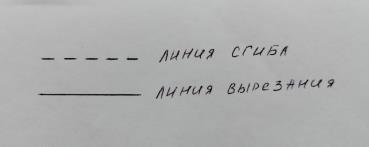 ЛИНИЯ СГИБА
ЛИНИЯ ВЫРЕЗАНИЯ